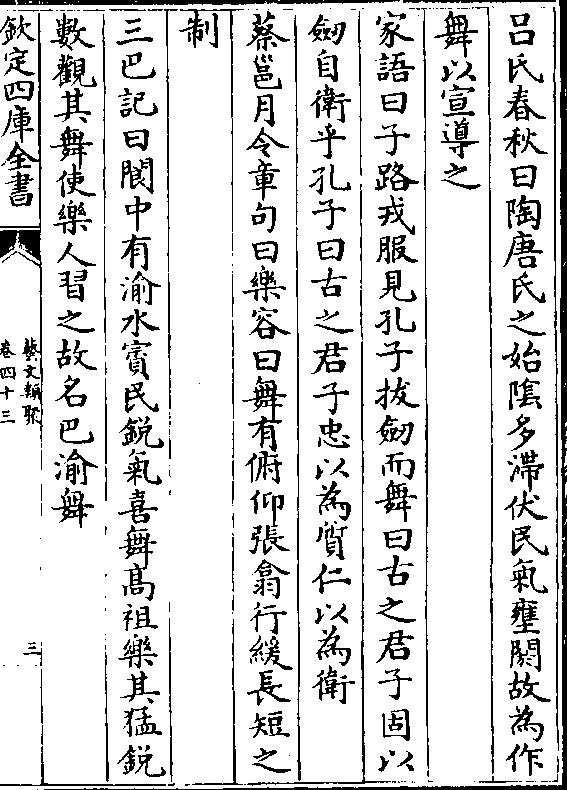 吕氏春秋曰陶唐氏之始陰多滯伏民氣壅閼故為作
舞以宣導之
家語曰子路戎服見孔子拔劒而舞曰古之君子固以
劒自衛乎孔子曰古之君子忠以為質仁以為衛
蔡邕月令章句曰樂容曰舞有俯仰張翕行緩長短之
制
三巴記曰閬中有渝水賨民鋭氣喜舞高祖樂其猛鋭
數觀其舞使樂人習之故名巴渝舞
欽定四庫全書
藝文類聚
卷四十三
三